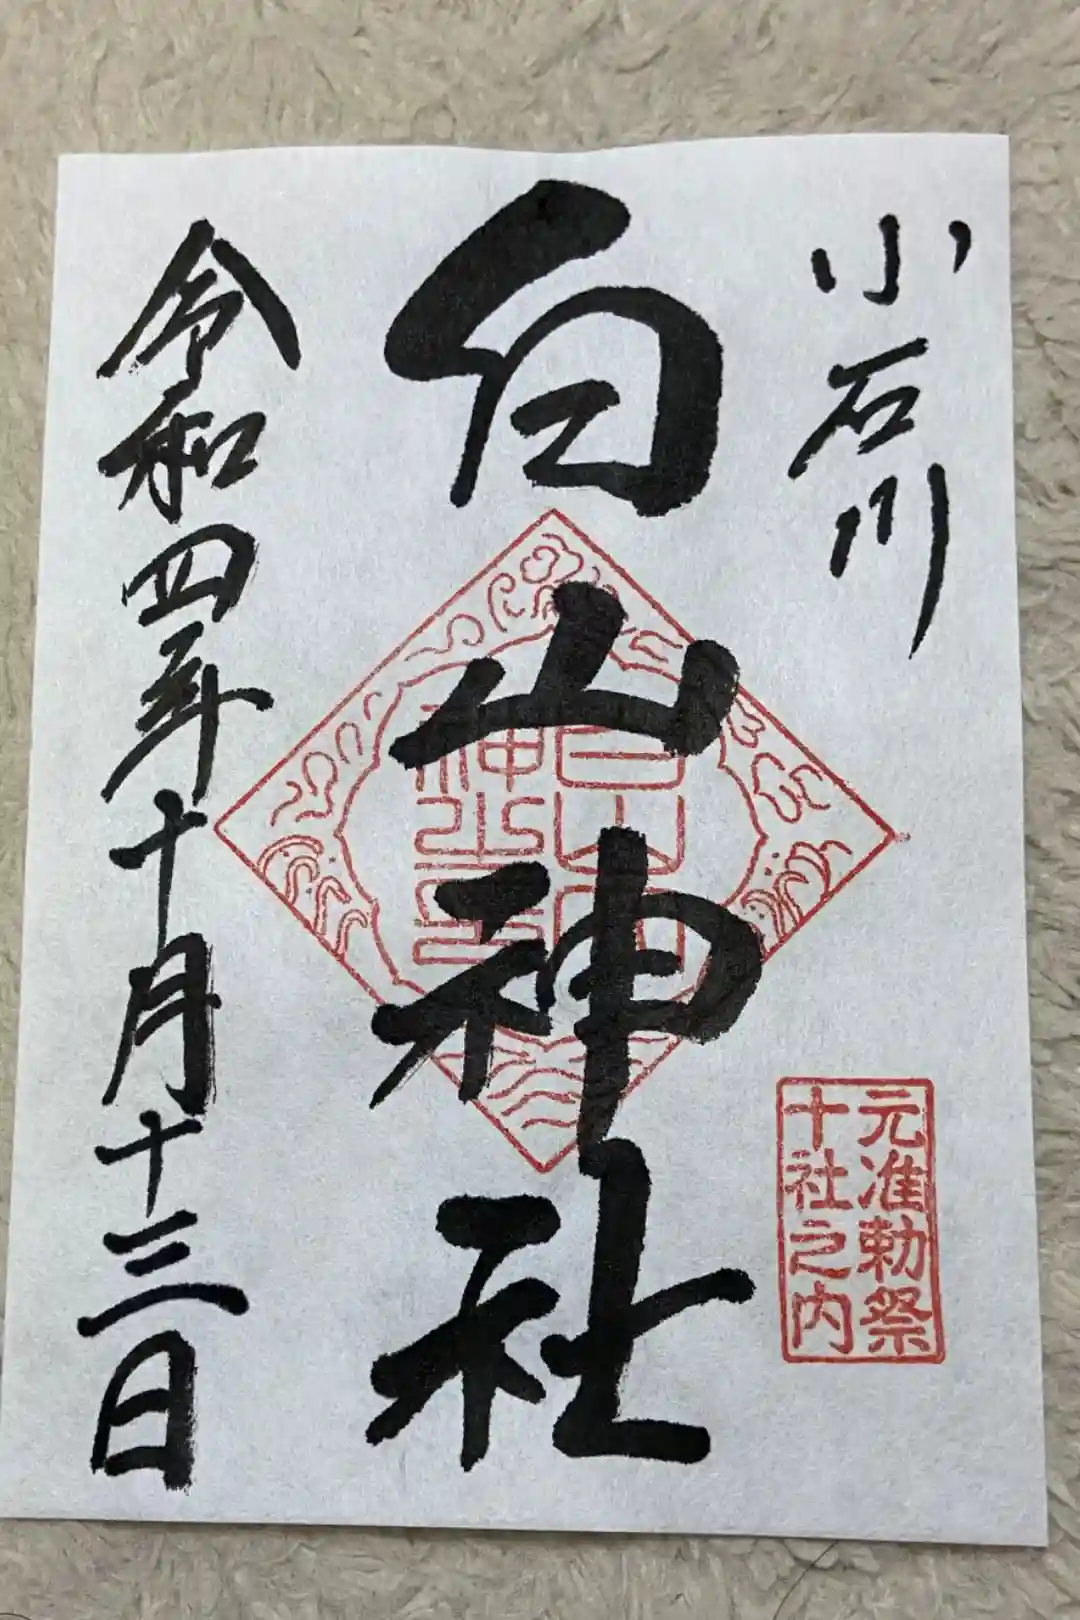 小石川
白山神社
令和四年十月十三日
元准勅祭
十社之内
白山
神社